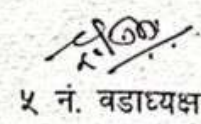 ५ नं. वडाध्यक्ष